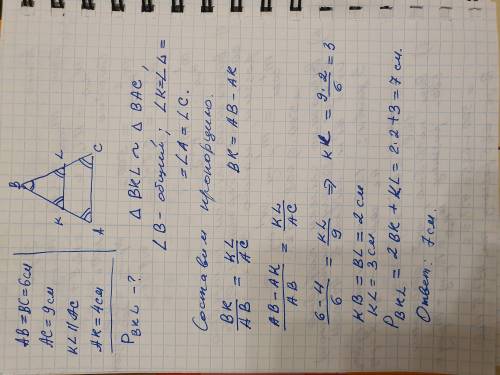 AB = BC = 6 см
AC = 9 см
KL || AC
AK = 4 см
P BKL - ?
B
K
L
A
C
Δ BKL ~ Δ BAC,
∠B - общий; ∠K = ∠L =
= ∠A = ∠C.
Составим пропорцию.
BK/AB = KL/AC    BK = AB - AK
AB - AK/AB = KL/AC
6 - 4/6 = KL/9 ⇒ KL = 9·2/6 = 3
KB = BL = 2 см
KL = 3 см
P BKL = 2 BK + KL = 2·2+3 = 7 см.
Ответ: 7 см.